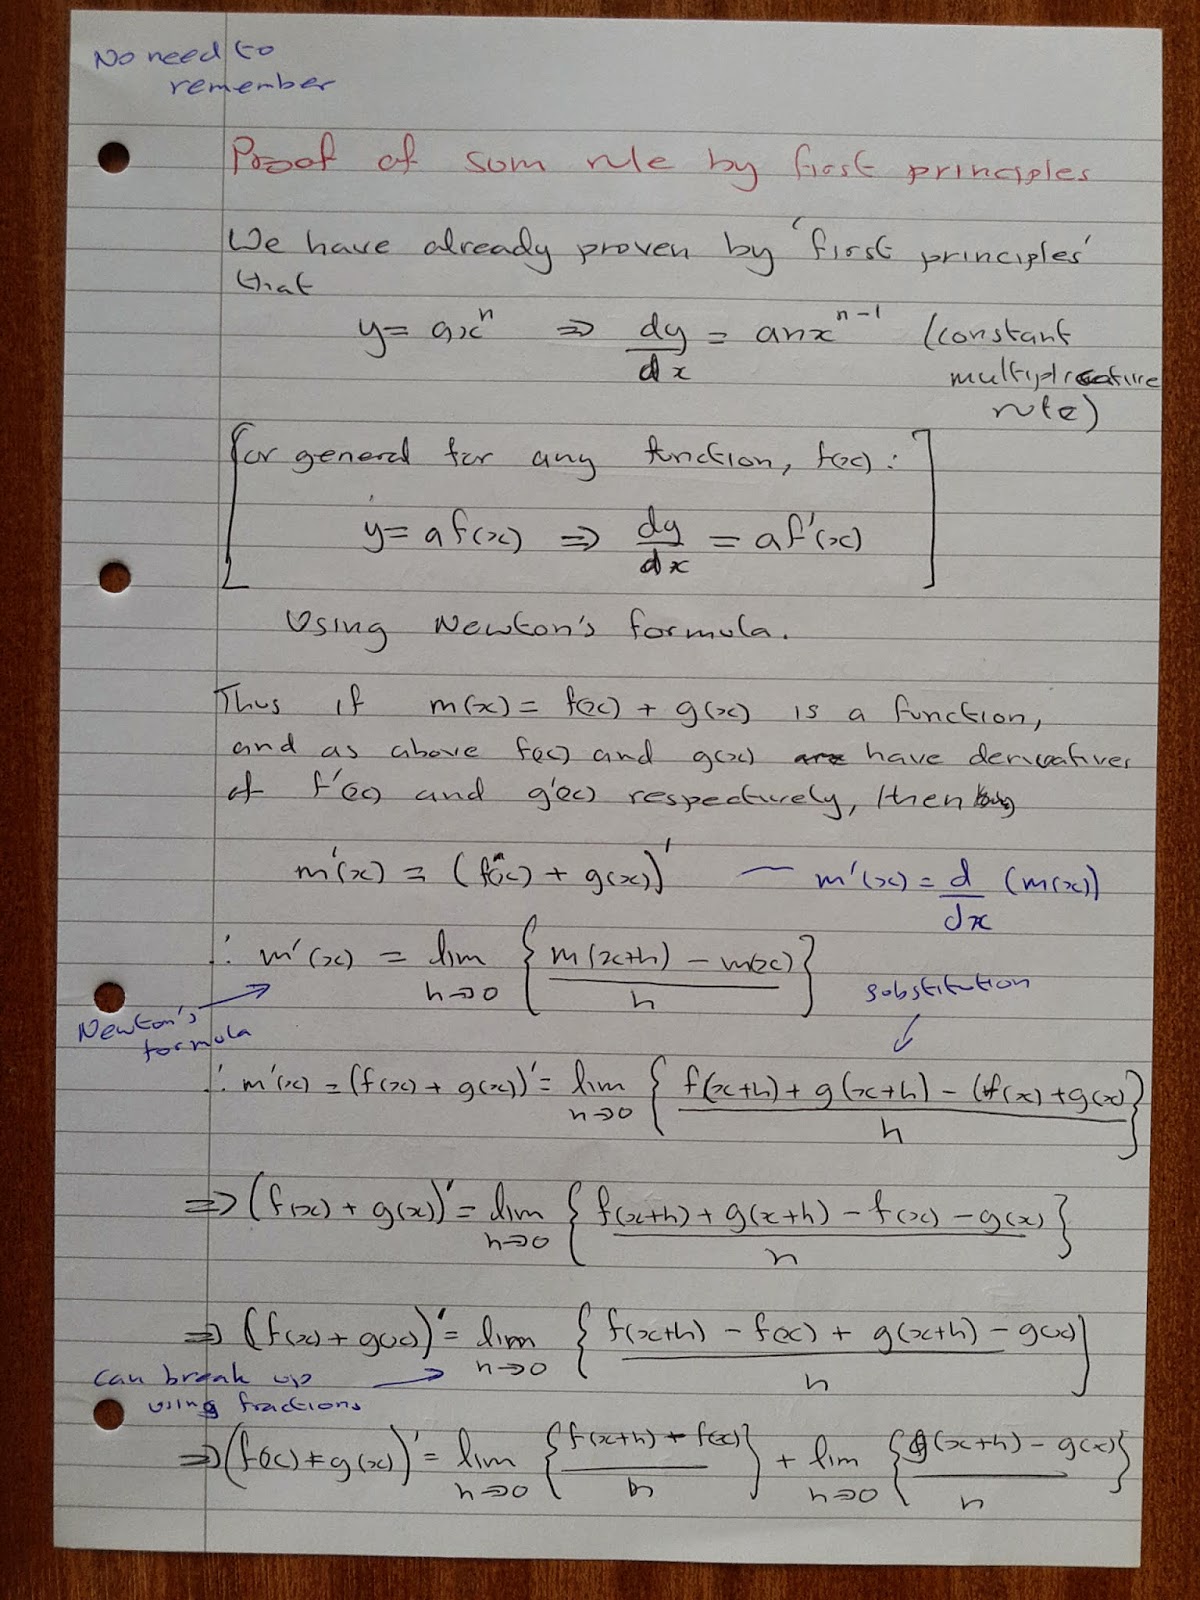 No need to
remember
Proof of sum rule by first principles
We have already proven by 'first principles'
that
y = axⁿ ⇒ dy/dx = anxⁿ⁻¹ (constant
multiplicative
rule)
[or general for any function, f(x):
y = af(x) ⇒ dy/dx = af'(x)]
Using Newton's formula.
Thus if m(x) = f(x) + g(x) is a function,
and as above f(x) and g(x) have derivatives
of f'(x) and g'(x) respectively, then
m'(x) = (f(x) + g(x))' — m'(x) = d/dx (m(x))
∴ m'(x) = lim h→0 { m(x+h) - m(x) / h }
substitution
Newton's
formula
∴ m'(x) = (f(x) + g(x))' = lim h→0 { f(x+h) + g(x+h) - (f(x) + g(x) / h }
⇒ (f(x) + g(x))' = lim h→0 { f(x+h) + g(x+h) - f(x) - g(x) / h }
⇒ (f(x) + g(x))' = lim h→0 { f(x+h) - f(x) + g(x+h) - g(x) / h }
can break up
using fractions
⇒ (f(x) + g(x))' = lim h→0 { f(x+h) - f(x) / h } + lim h→0 { g(x+h) - g(x) / h }